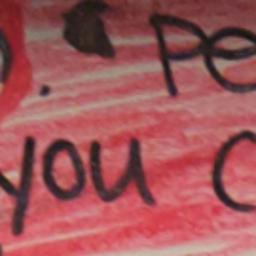 . Pe
you c